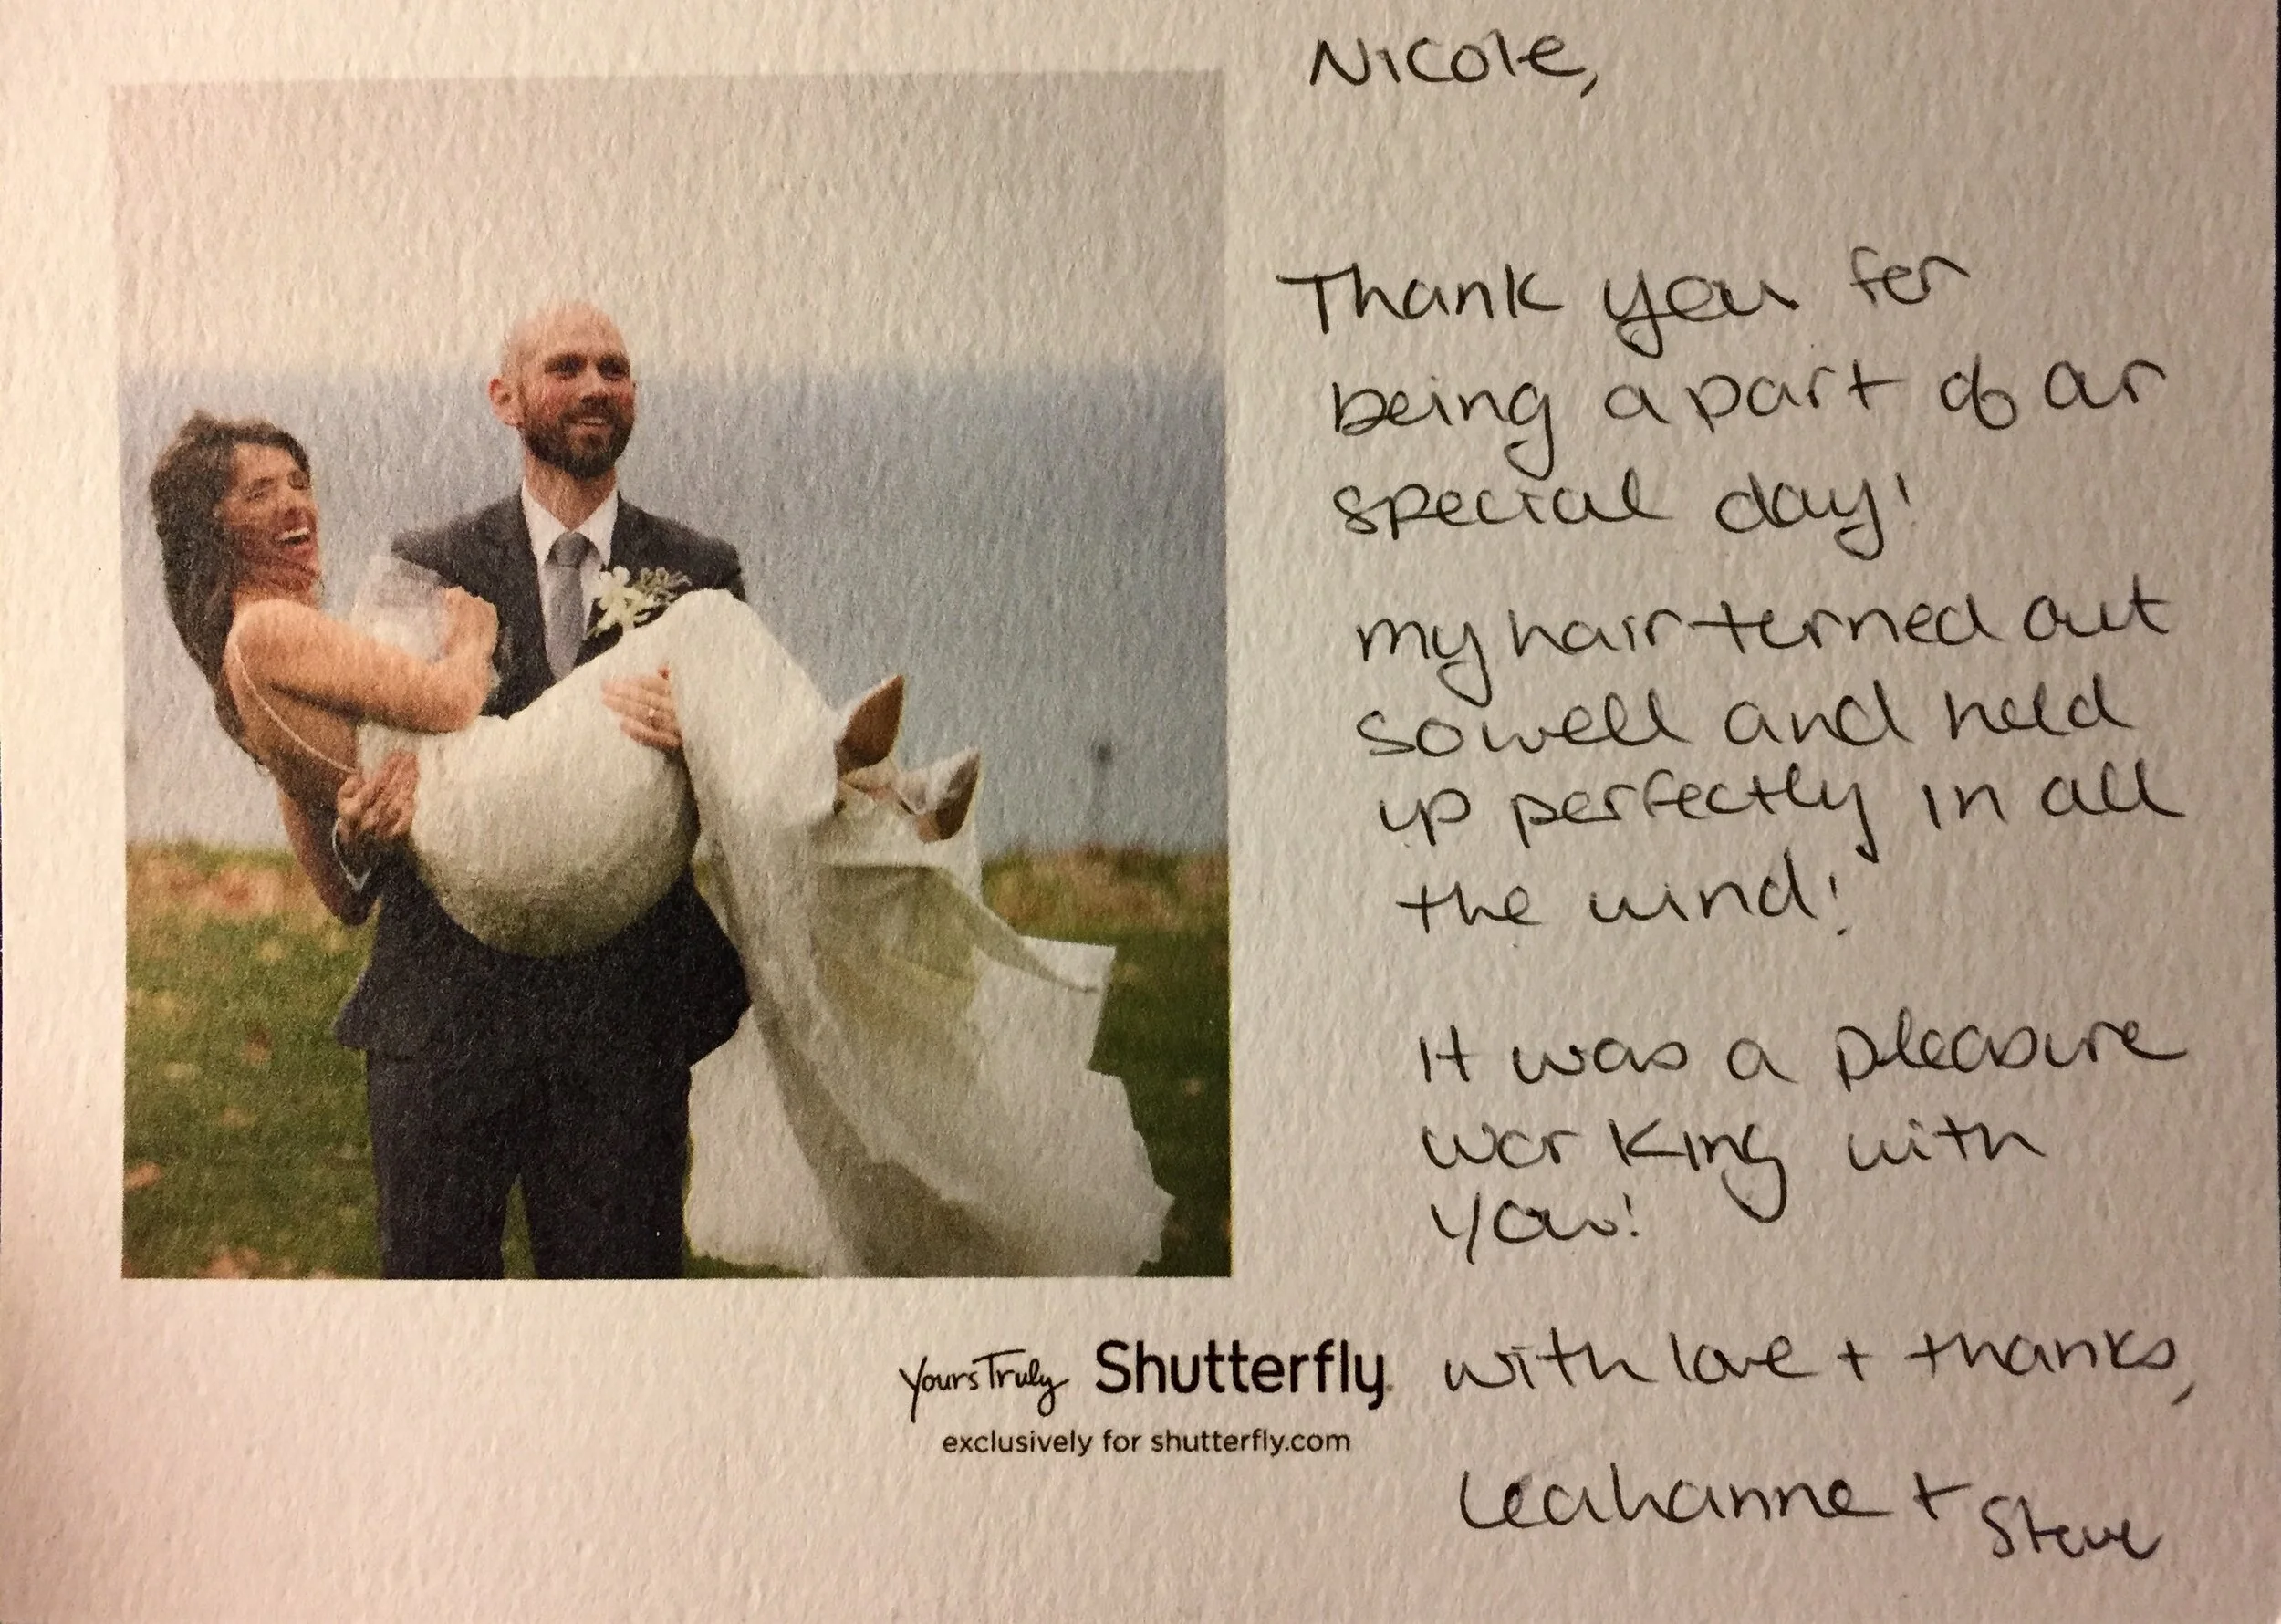 Nicole,
Thank you for
being a part of our
special day!
my hair turned out
so well and held
up perfectly in all
the wind!
It was a pleasure
working with
you!
with love + thanks,
Leahanne + Steve
Yours Truly Shutterfly
exclusively for shutterfly.com